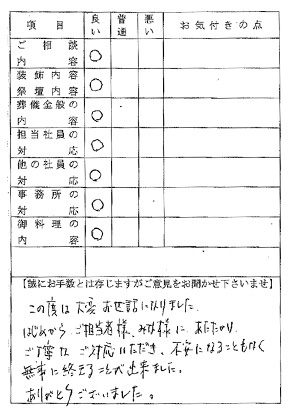 項目 良い 普通 悪い お気付きの点
ご相談内容 ○
装飾内容祭壇内容 ○
葬儀全般の内容 ○
担当社員の対応 ○
他の社員の対応 ○
事務所の対応 ○
御料理の内容 ○
【誠にお手数とは存じますがご意見をお聞かせ下さいませ】
この度は大変お世話になりました。
はじめから ご担当者様、みな様に、あたたかく、
ご丁寧な ご対応いただき、不安になることもなく
無事に終えることが出来ました。
ありがとうございました。